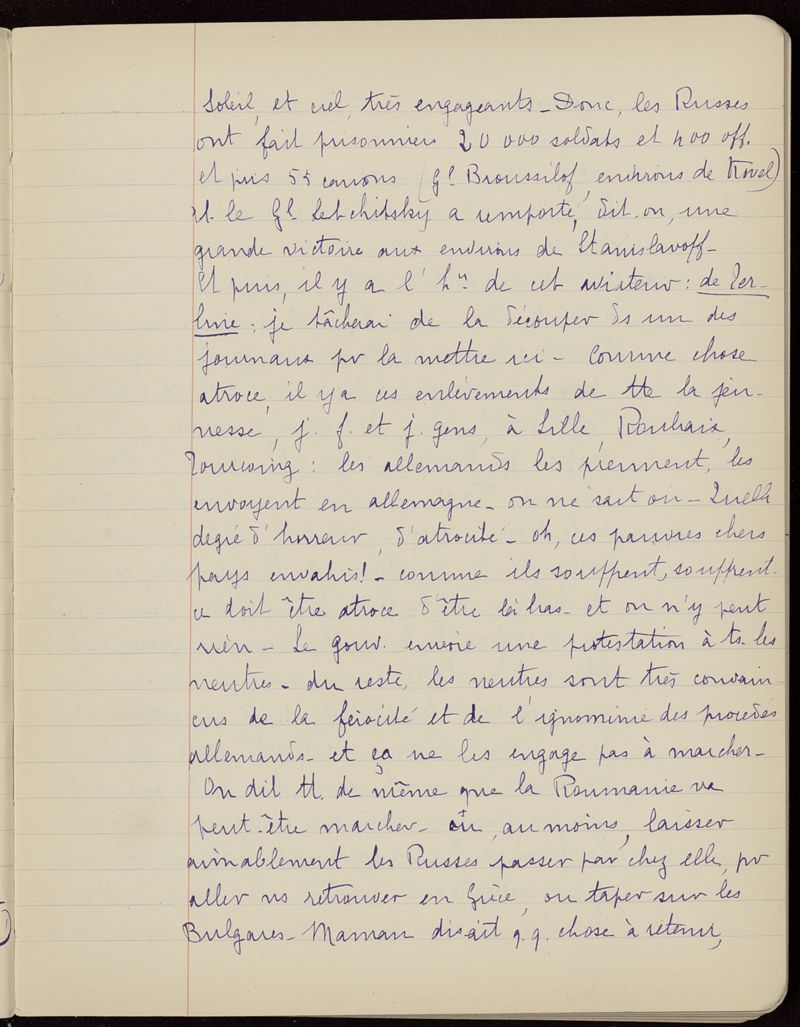 Soleil, et ciel, très engageants - Donc, les Russes
ont fait prisonniers 20 000 soldats et 400 off.
et pris 55 canons (Gl Broussilof, environs de Kovel)
et le Gl Letchitsky a remporté, dit-on, une
grande victoire aux environs de Stanislavoff -
Et puis, il y a l' hre de cet aviateur : de Ter-
line ; je tâcherai de la découper ds un des
journaux pr la mettre ici - Comme chose
atroce, il y a ces enlèvements de tte la jeu-
nesse, j. f. et j. gens, à Lille, Roubaix,
Tourcoing : les allemands les prennent, les
envoyent en allemagne - on ne sait où - Quelle
degré d'horreur, d'atrocité - oh, ces pauvres chers
pays envahis! - comme ils souffrent, souffrent -
ce doit être atroce d'être là bas - et on n'y peut
rien - Le gouv. envoie une protestation à ts les
neutres - du reste, les neutres sont très convain-
cus de la férocité et de l'ignominie des procédés
allemands - et ça ne les engage pas à marcher -
On dit tt de même que la Roumanie va
peut-être marcher - ou, au moins, laisser
aimablement les Russes passer par chez elle, pr
aller ns retrouver en Grèce, ou taper sur les
Bulgares - Maman disait q.q. chose à retenir,